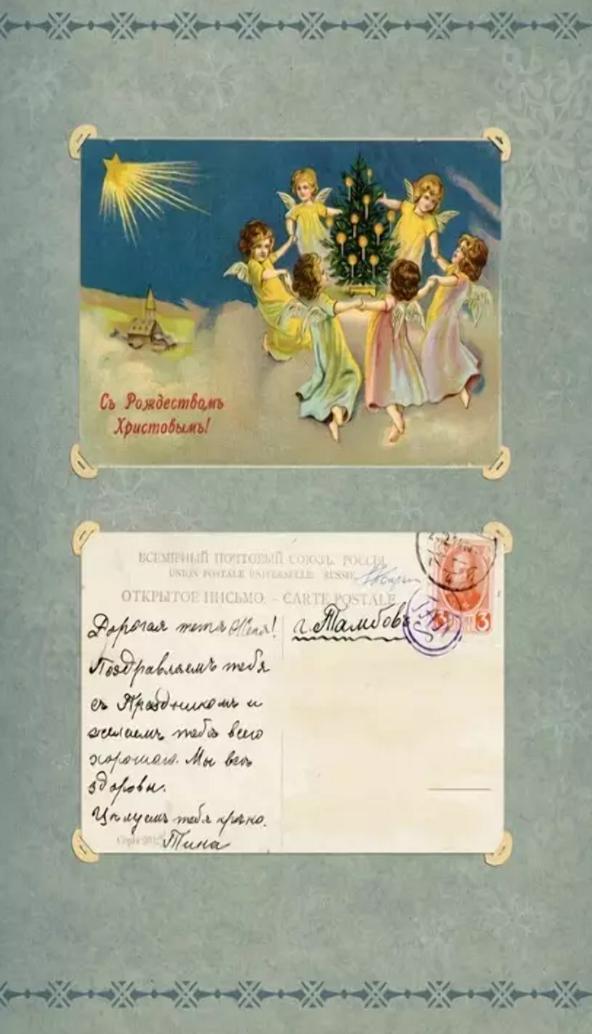 Съ Рождествомъ
Христовымъ!
ВСЕМІРНЫЙ ПОЧТОВЫЙ СОЮЗЪ. РОССІЯ
UNION POSTALE UNIVERSELLE. RUSSIE
ОТКРЫТОЕ ПИСЬМО. - CARTE POSTALE
Дорогая тетя Женя!
Поздравляемъ тебя
съ Праздникомъ и
желаемъ тебѣ всего
хорошаго. Мы всѣ
здоровы.
Цѣлуемъ тебя крѣпко.
Тина
г. Тамбовъ
3